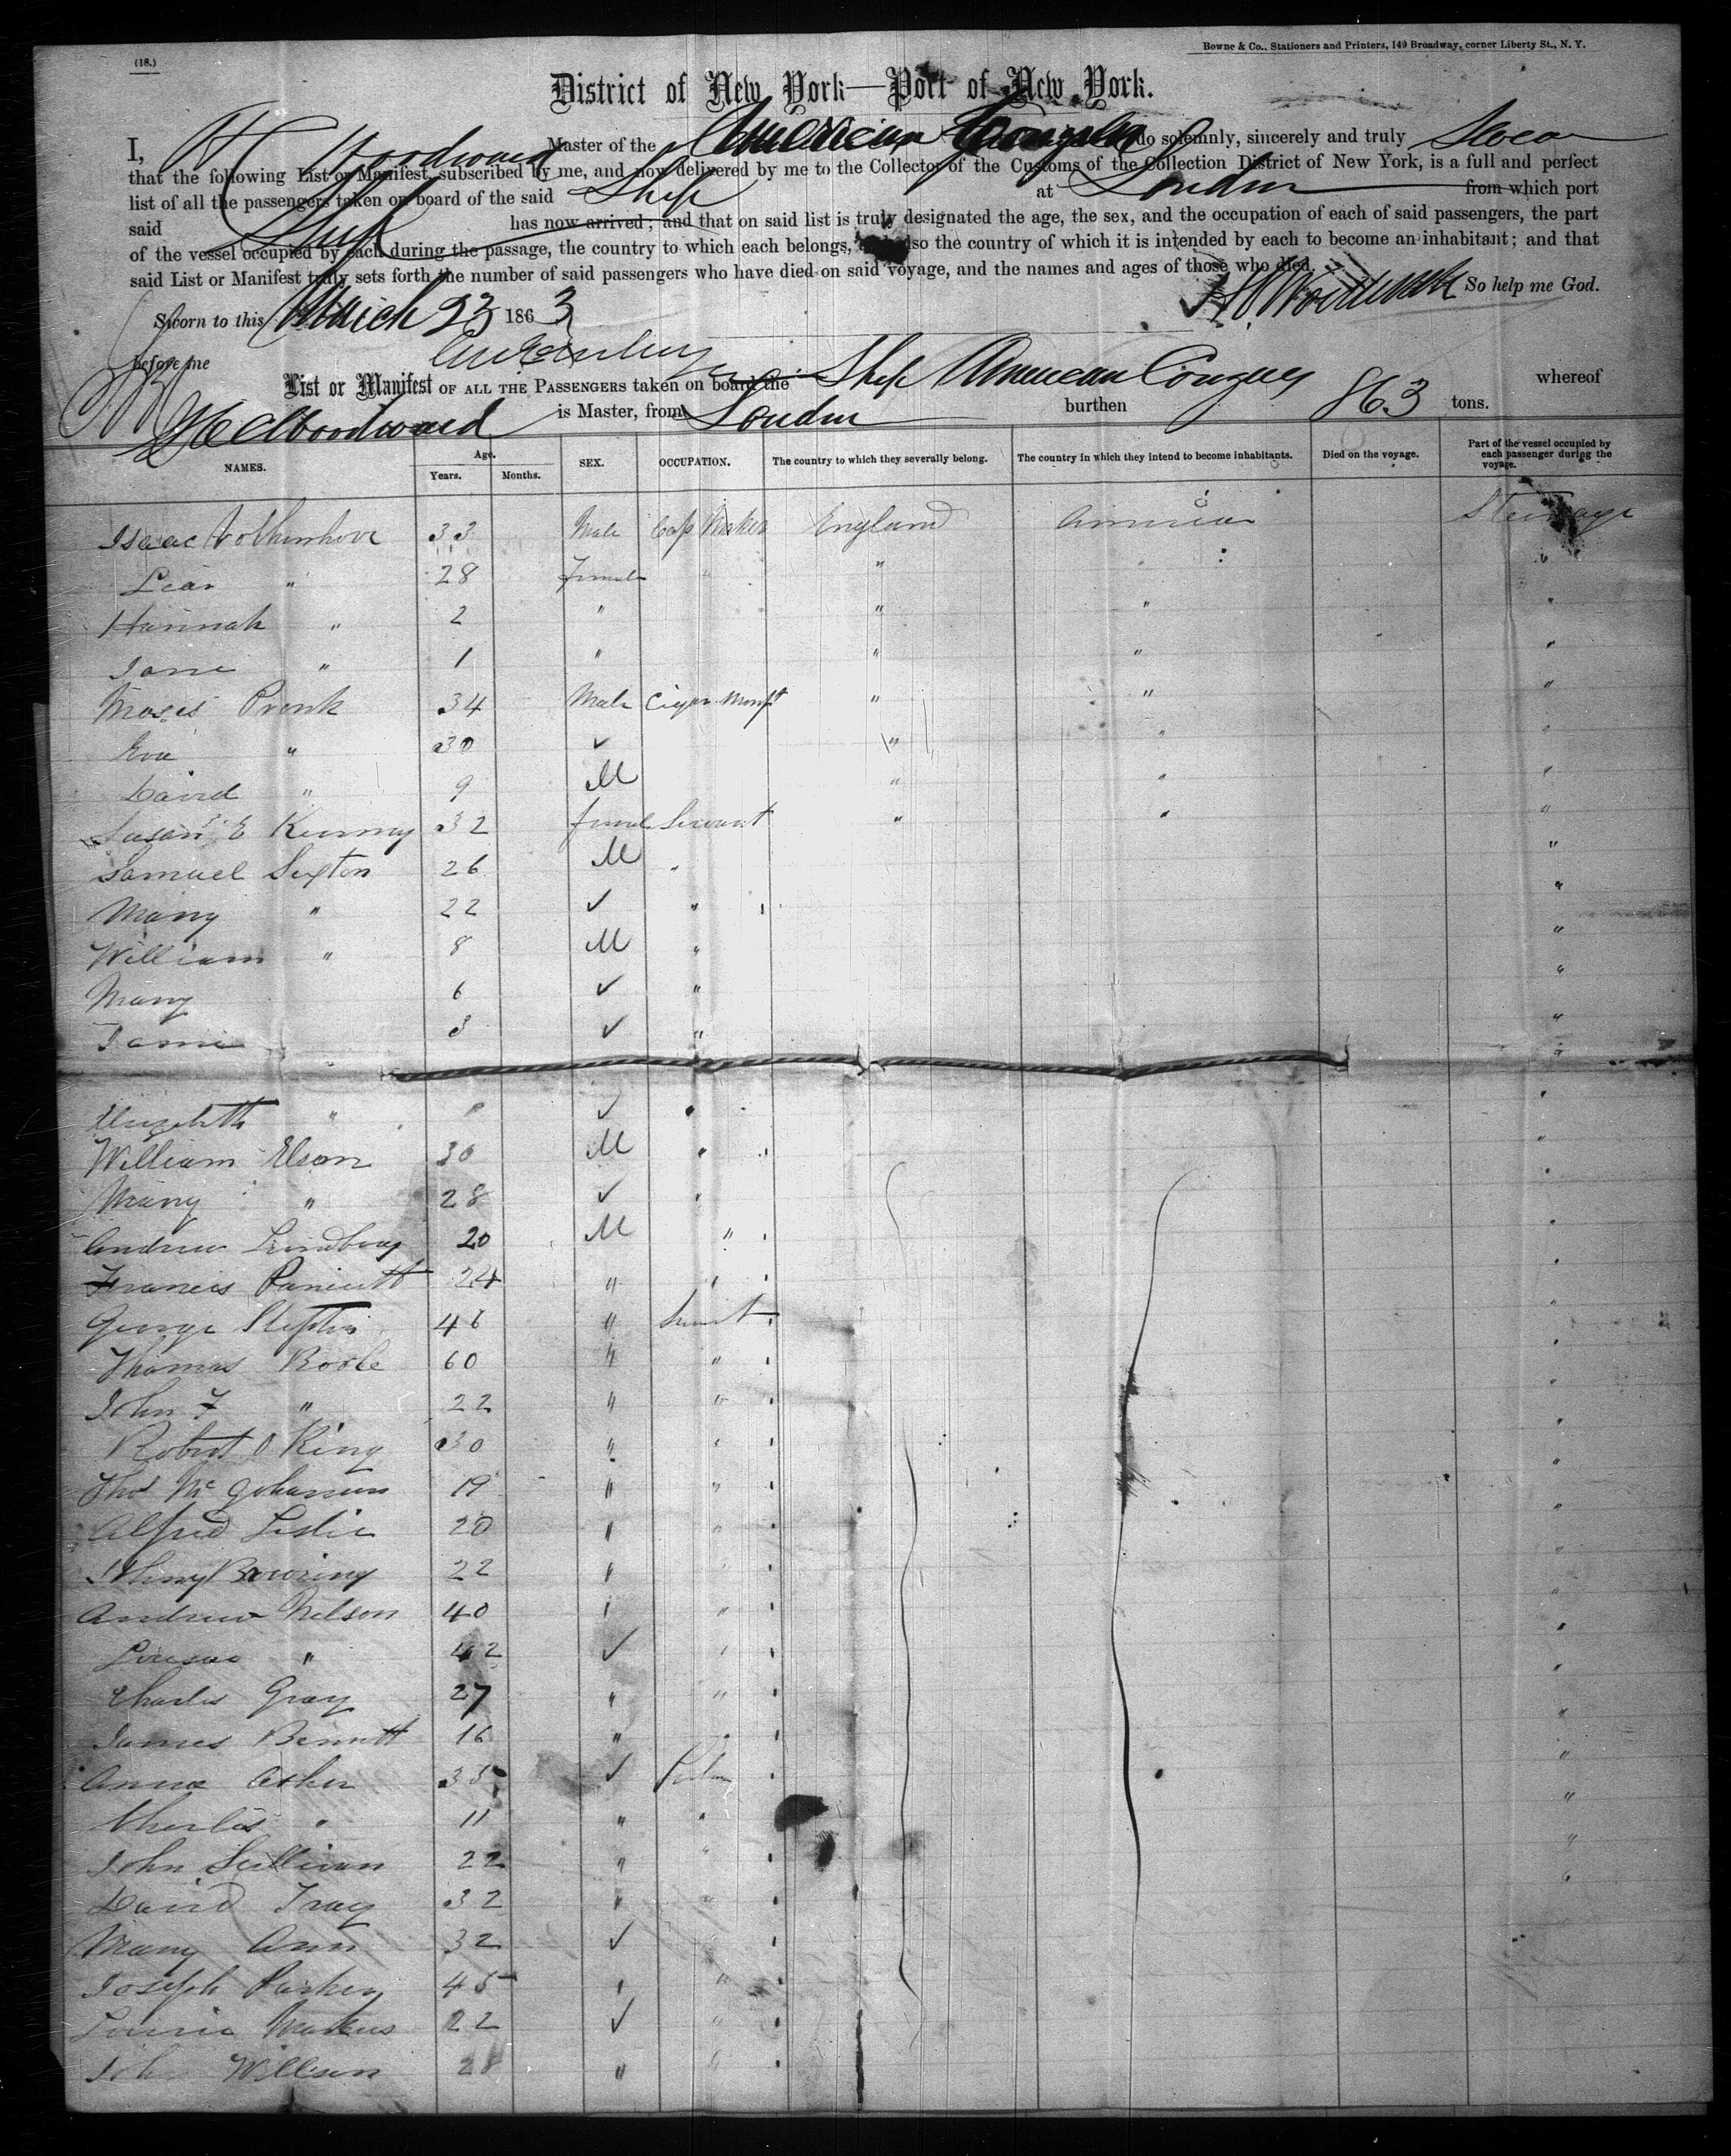 (18.)
Bowne & Co., Stationers and Printers, 149 Broadway, corner Liberty St., N. Y.
District of New York—Port of New York.
I, H C Woodward Master of the American Congress do solemnly, sincerely and truly
that the following List or Manifest, subscribed by me, and now delivered by me to the Collector of the Customs of the Collection District of New York, is a full and perfect
list of all the passengers taken on board of the said Ship at London from which port
said Ship has now arrived; and that on said list is truly designated the age, the sex, and the occupation of each of said passengers, the part
of the vessel occupied by each during the passage, the country to which each belongs, also the country of which it is intended by each to become an inhabitant; and that
said List or Manifest truly sets forth the number of said passengers who have died on said voyage, and the names and ages of those who died.
H C Woodward So help me God.
Sworn to this March 23 1863
before me
List or Manifest OF ALL THE PASSENGERS taken on board the Ship American Congress whereof
H C Woodward is Master, from London burthen 863 tons.
NAMES. Age. Years. Months. SEX. OCCUPATION. The country to which they severally belong. The country in which they intend to become inhabitants. Died on the voyage. Part of the vessel occupied by each passenger during the voyage.
Isaac 33 Male Cap Maker England America Steerage
Lear " 28 female " " " "
Hannah " 2 " " " "
Jane " 1 " " " "
Moses Pronk 34 Male Cigar Manft " " "
Eva " 30 ✓ " " "
David " 9 M " " "
Susan E 32 female Servant " " "
Samuel Sexton 26 M " "
Mary " 22 ✓ " "
William " 8 M " "
Mary 6 ✓ " "
Jane 3 ✓ " "
Elizabeth " ✓ " "
William Elson 30 M " "
Mary " 28 ✓ " "
Andrew Lundberg 20 M " "
Francis 24 " " "
George 46 " Servt "
Thomas Boole 60 " " "
John F " 22 " " "
Robert O King 30 " " "
Thos Mc 19 " " "
Alfred Leslie 20 " " "
Henry Bowring 22 " " "
Andrew Nelson 40 " " "
" 42 ✓ " "
Charles Gray 27 " " "
James Bennett 16 " " "
Anna Asher 35 ✓ "
Charles " 11 " " "
John Sullivan 22 " " "
David Tracy 32 " "
Mary Ann 32 ✓ "
Joseph 45 " "
Markus 22 ✓ "
John Willson 28 " "